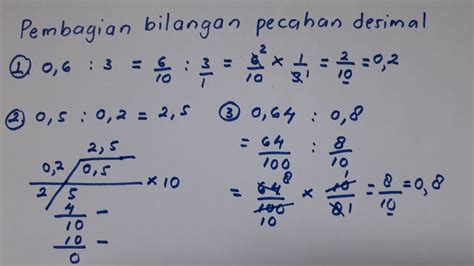 Pembagian bilangan pecahan desimal
① 0,6 : 3 = 6/10 : 3/1 = 6̶²/10 × 1/3̶¹ = 2/10 = 0,2
② 0,5 : 0,2 = 2,5
2,5
0,2 / 0,5
× 10
2 5
4 -
10
10 -
0
③ 0,64 : 0,8
= 64/100 : 8/10
= 6̶4̶⁸/1̶0̶0̶ 10 × 1̶0̶¹/8̶ 1 = 8/10 = 0,8